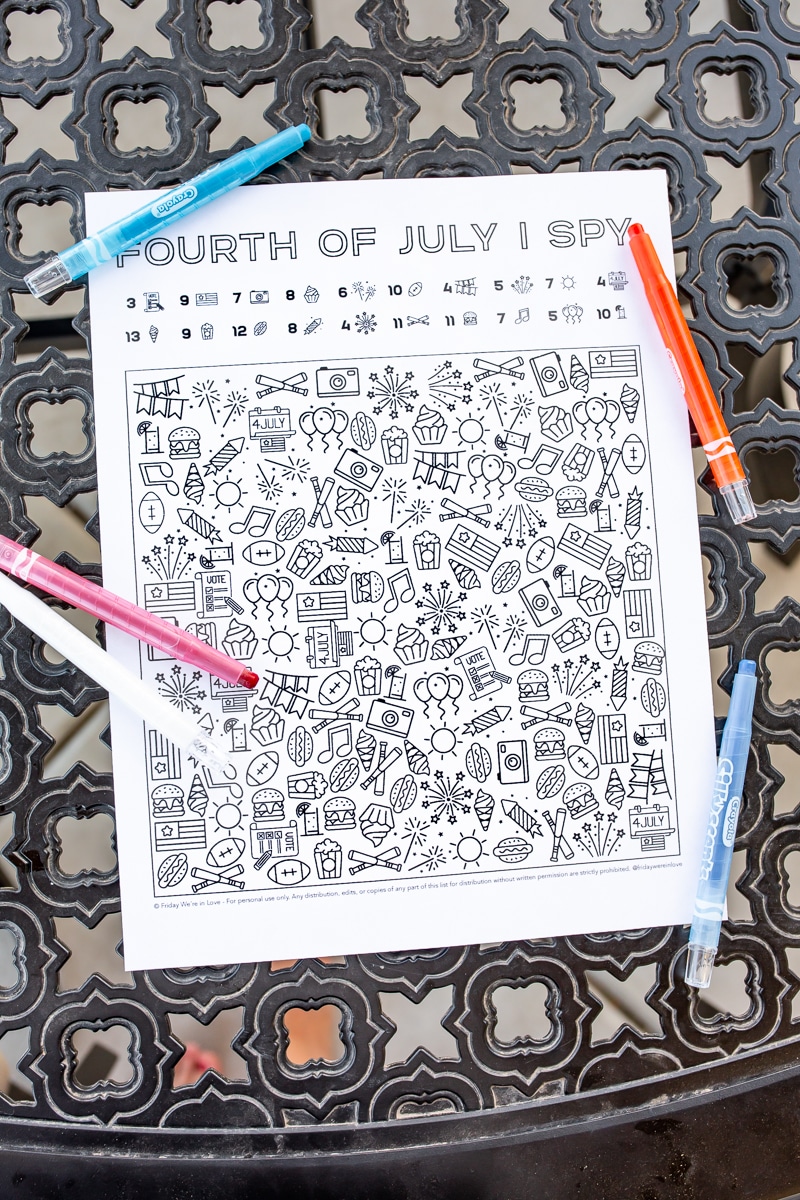 Crayola
FOURTH OF JULY I SPY
3 9 7 8 6 10 4 5 7 4
13 9 12 8 4 11 11 7 5 10
4 JULY
VOTE
4 JULY
VOTE
4 JULY
VOTE
4 JULY
Crayola
© Friday We're in Love - For personal use only. Any distribution, edits, or copies of any part of this list for distribution without written permission are strictly prohibited. @fridaywereinlove